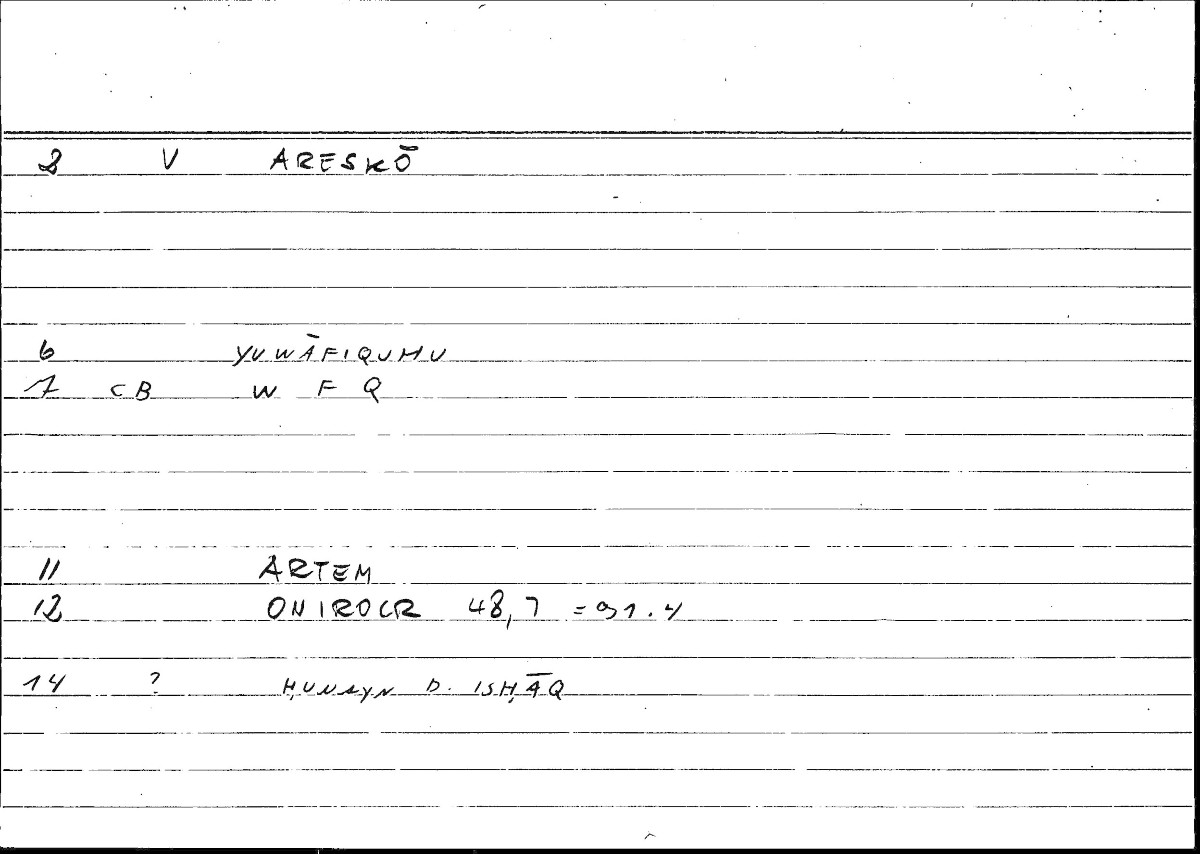 2 V ARESKŌ
6 YUWĀFIQUHU
7 CB W F Q
11 ARTEM
12 ONIROCR 48,7 = 91.4
14 ? ḤUNAYN B. ISḤĀQ